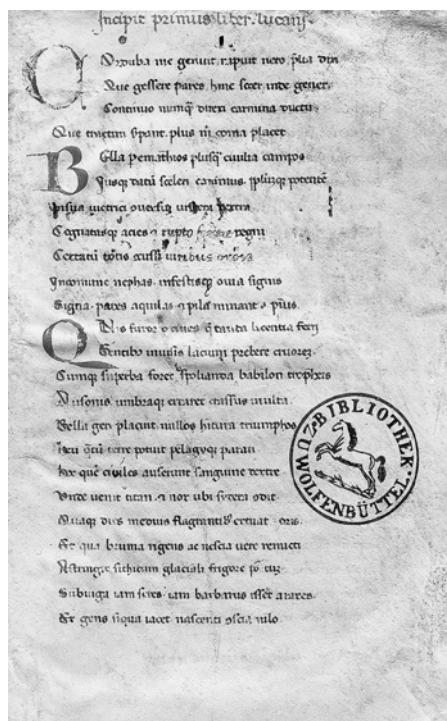 Incipit primus liber lucani.
Corduba me genuit rapuit nero, plia dixi
Que gessere pares, hinc socer inde gener.
Continuo numq̃ direxi carmina ductu
Que tractim s̃pant. plus m̃ coma placet
Bella p emathios plusq̃ civilia campos
Iusq̃ datũ sceleri canimus. pplũq; potentẽ
In sua victrici
Cognatasq; acies rupto regni
Certatũ totis viribus orbis
In comune nephas. infestisq; signis
Signa. pares aquilas pila minantia pilis.
Quis furor o cives q̃ tanta licentia ferri
Gentibus invisis latium prebere cruorem.
Cumq; superba foret spolianda babilon tropheis
Ausoniis umbraq; erraret crassus inulta.
Bella geri placuit nullos hitura triumphos
Heu q̃tũ terre potuit pelagiq; parari
hec quẽ civiles hauserunt sanguine dextre
Unde venit titan nox ubi sydera
Quaq; dies medius flagrantib; estuat oris.
Et qua bruma rigens ac nescia vere remitti
Astringit sithicum glaciali frigore
Sub iuga iam seres. iam barbarus isset araxes.
Et gens siqua iacet nascenti 9scia nilo.
BIBLIOTHEK ZU WOLFENBÜTTEL.